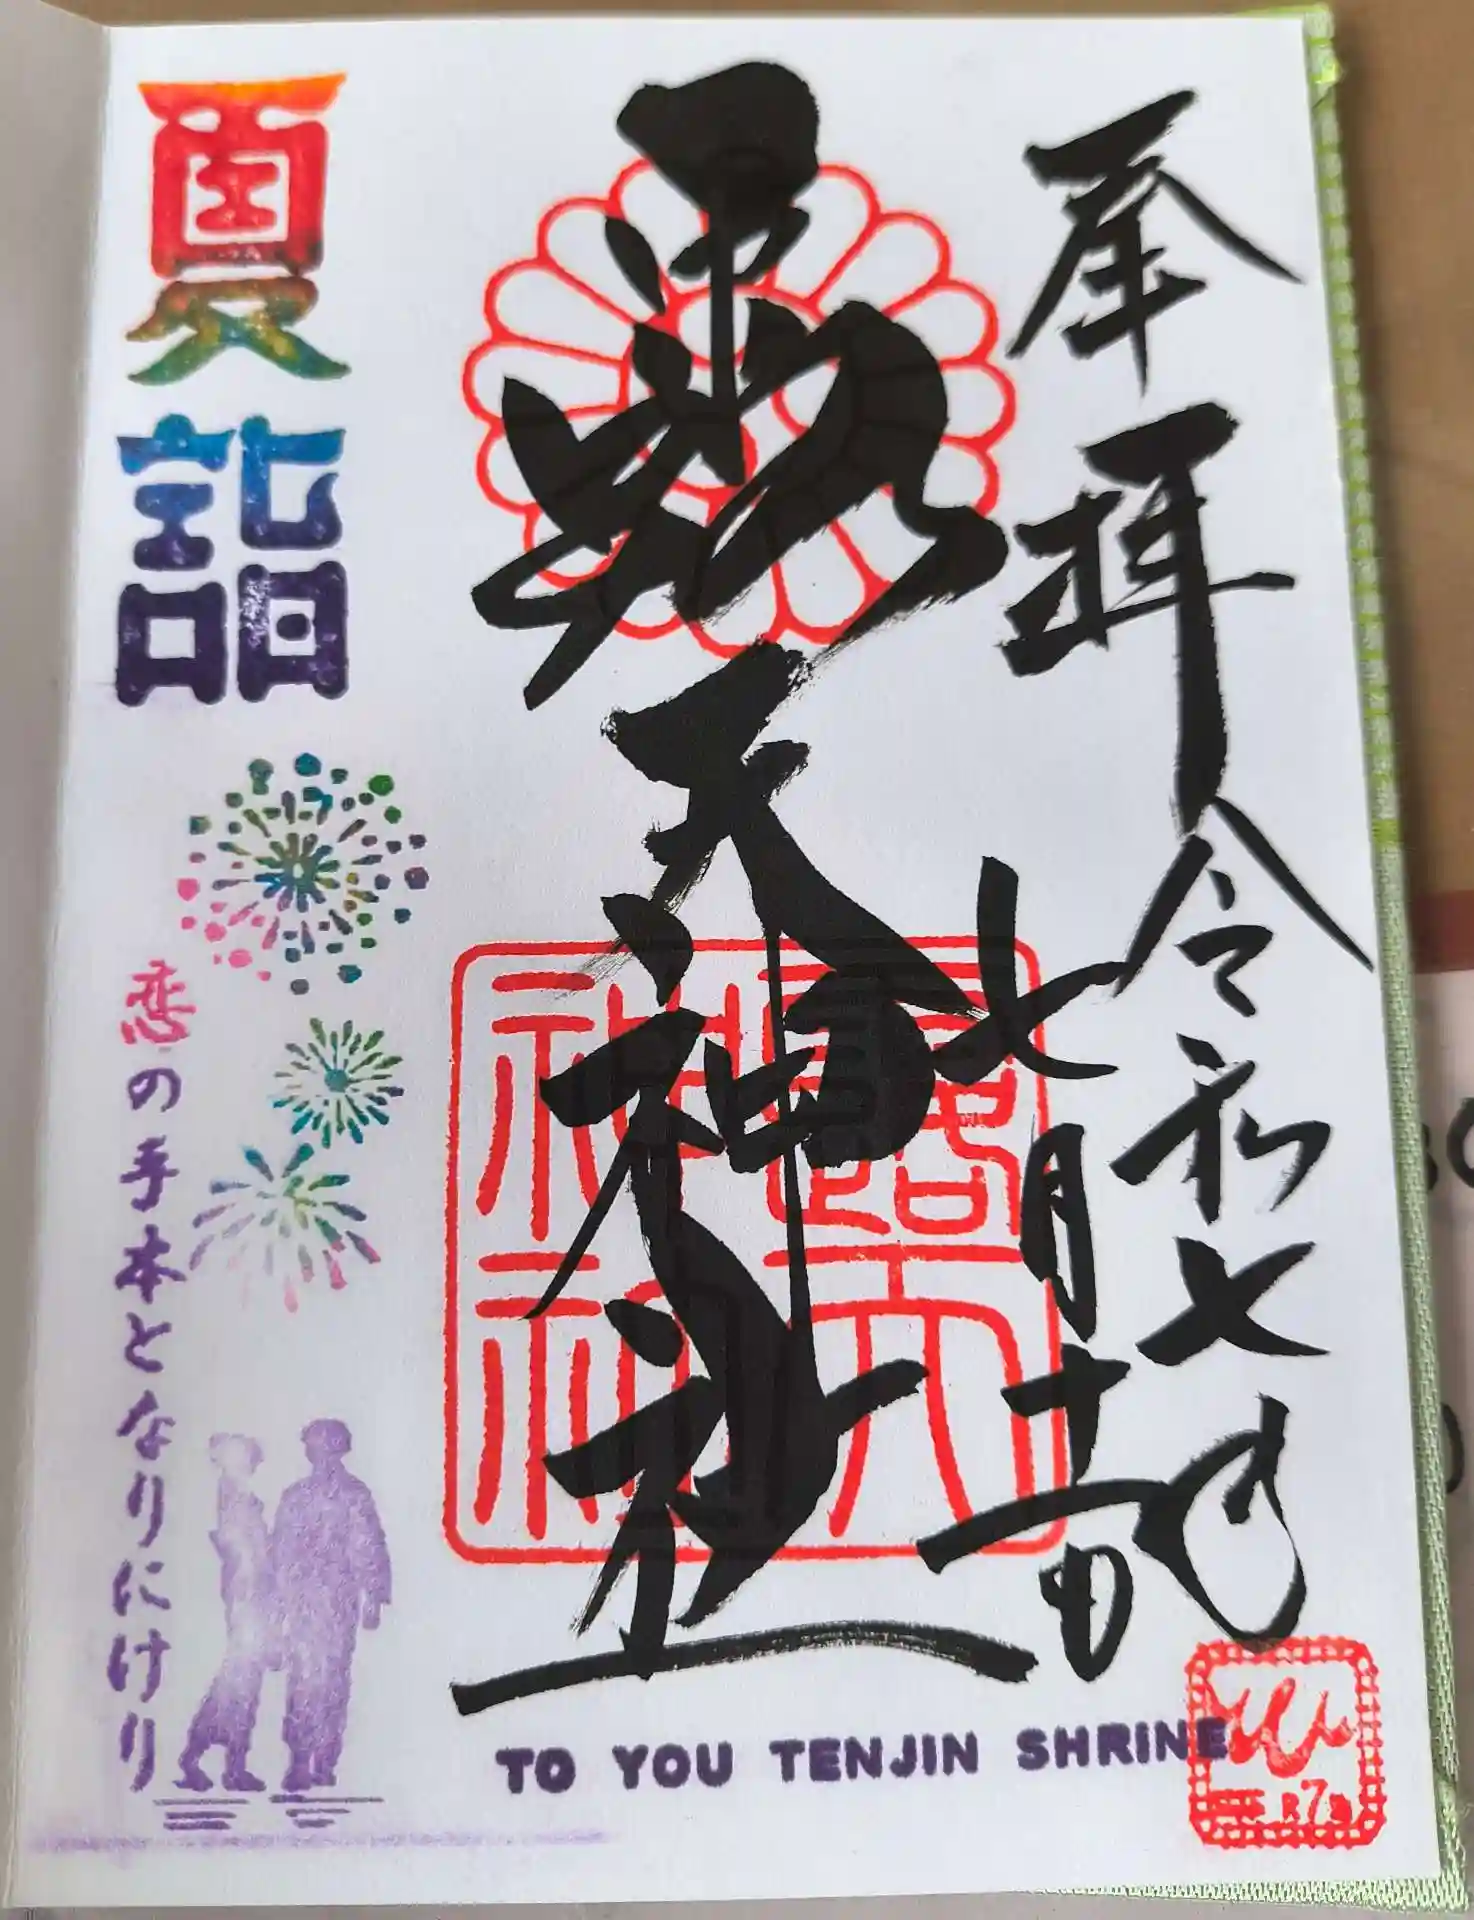 奉拝
令和七年
七月
露天神社
露天神社
夏詣
恋の手本となりにけり
TO YOU TENJIN SHRINE
R7